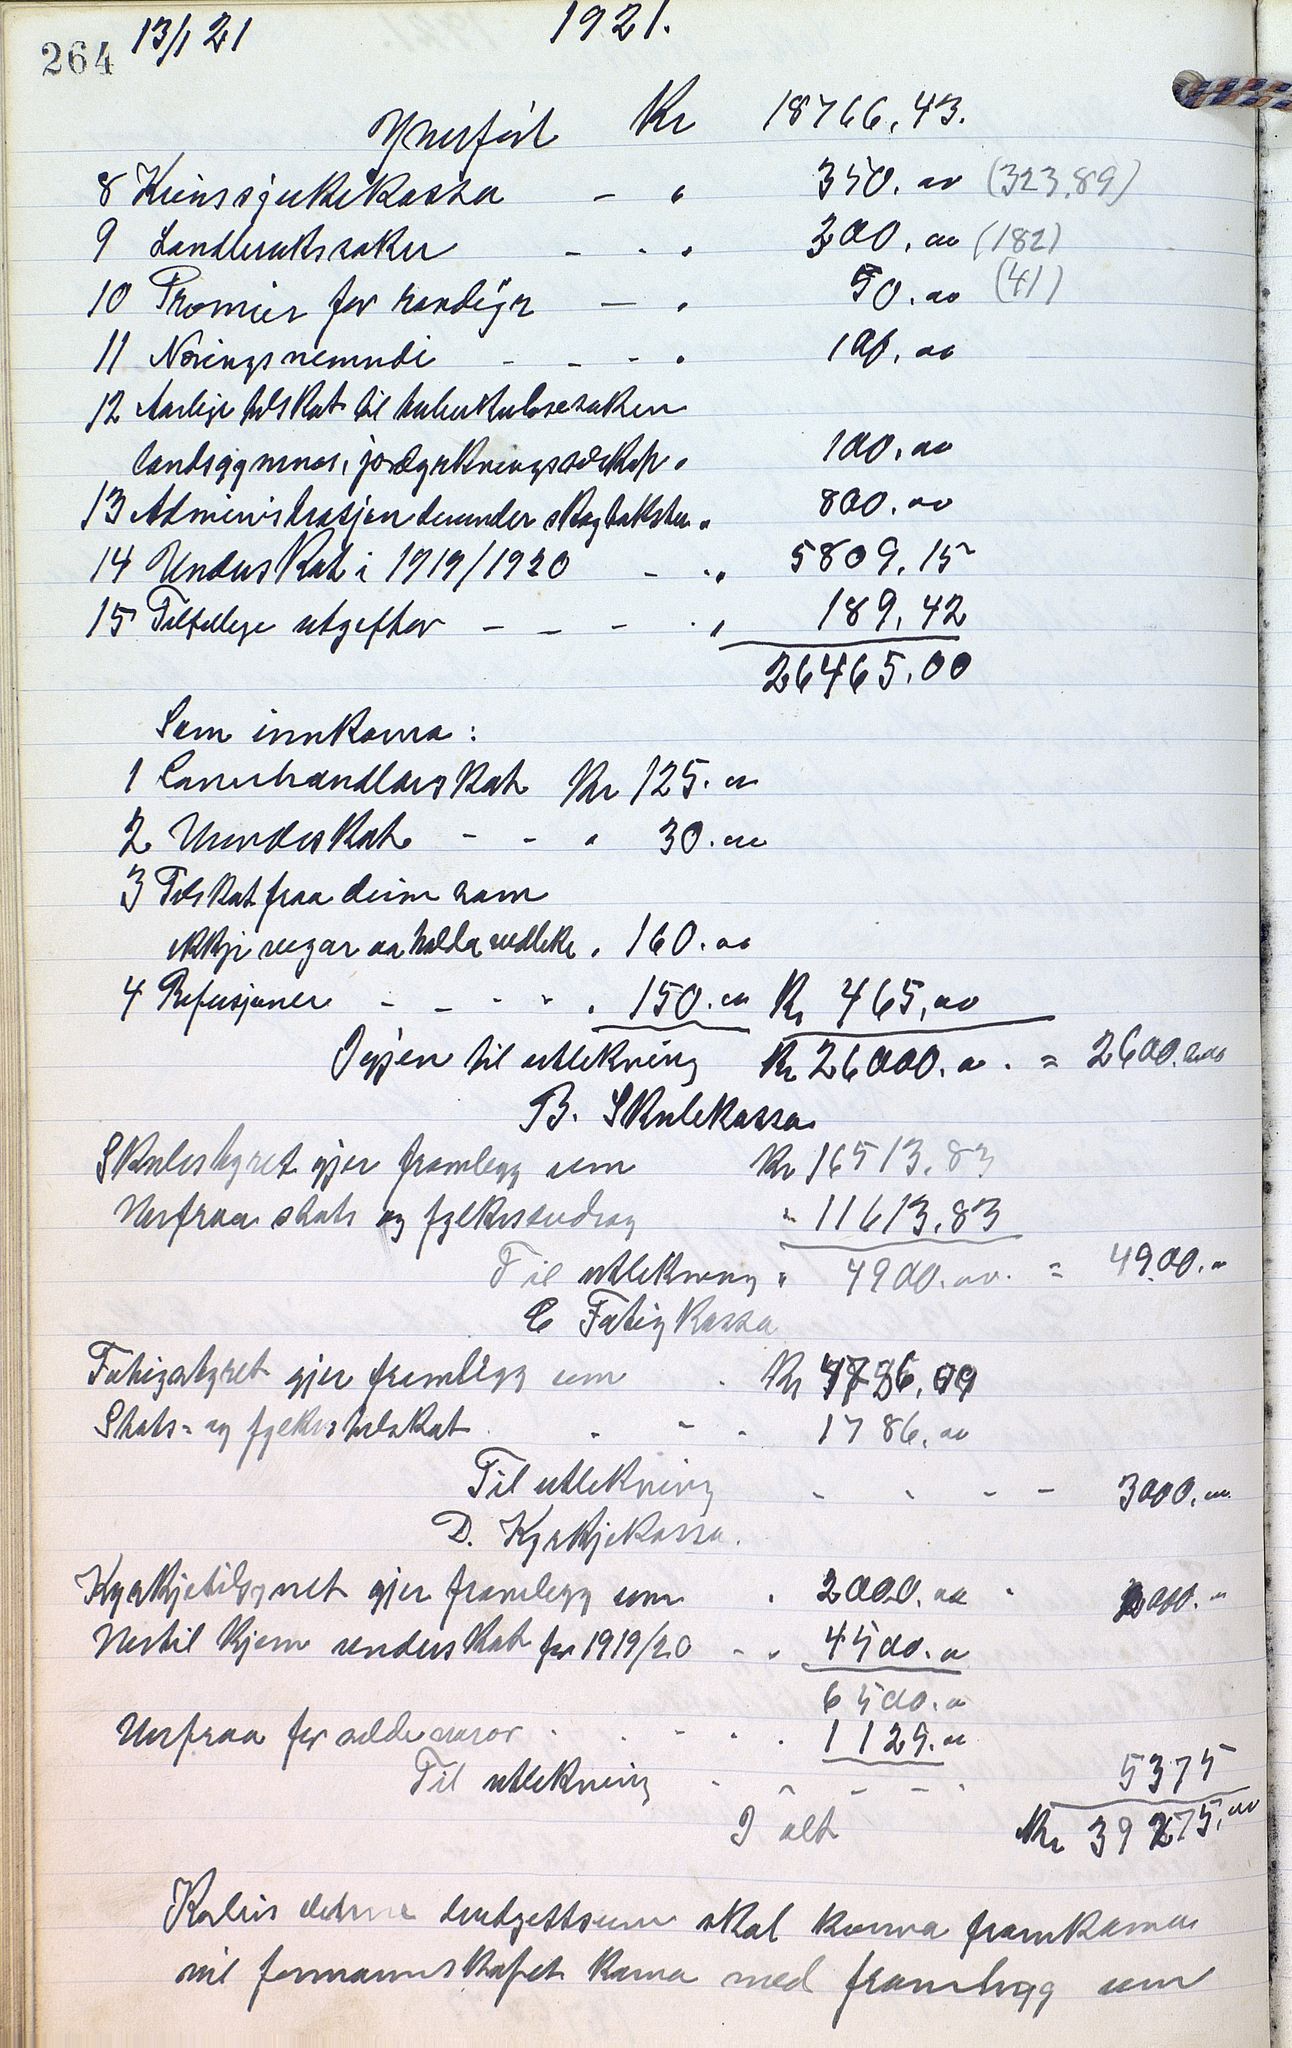 264 13/1 21 1921.
Yverført Kr 18766,43.
8 Krinssjukekassa - " 350.00 (323.89)
9 Landbrukssaker - - " 200,00 (182)
10 Premier for rovdyr - " 50.00 (41)
11 Næringsnemndi - - - " 100,00
12 Aarlege tilskot til tuberkulosesaken
landsgymnas, jordyrkningsselskap " 100,00
13 Administrasjon derunder skogtakster " 800.00
14 Underskot i 1919/1920 - - " 5809,15
15 Tilfellege utgifter - - - - " 189,42
26465,00
Som innkoma:
1 Lauvhandlarskat Kr 125.00
2 Hundeskat - - " 30.00
3 Tilskot fraa deim som
ikkje vegar aa halda vedlike " 160.00
4 Refusjoner - - - - " 150.00 Kr 465,00
Igjen til utlikning Kr 26000.00 = 2600.00
B. Skulekassa
Skulestyret gjer framlegg um Kr 16513,83
Herfraa stats og fylkestudrag " 11613,83
Til utlikning " 4900.00. = 4900.00
C Fatigkassa
Fatigstyret gjer framlegg um Kr 4786,00
Stats- og fylkestilskot - - - 1786,00
Til utlikning - - - - 3000.00
D. Kyrkjekassa.
Kyrkjetilsynet gjer framlegg um " 2000.00 " 2000.00
Hertil kjem underskot for 1919/20 - " 4500.00
6500.00
Herfraa for selde varor - - - 1129.00
Til utlikning - - - - - 5375
I alt Kr 39275,00
Korleis denne budgettsum skal kunna framkomma
vil formannskapet koma med framlegg um